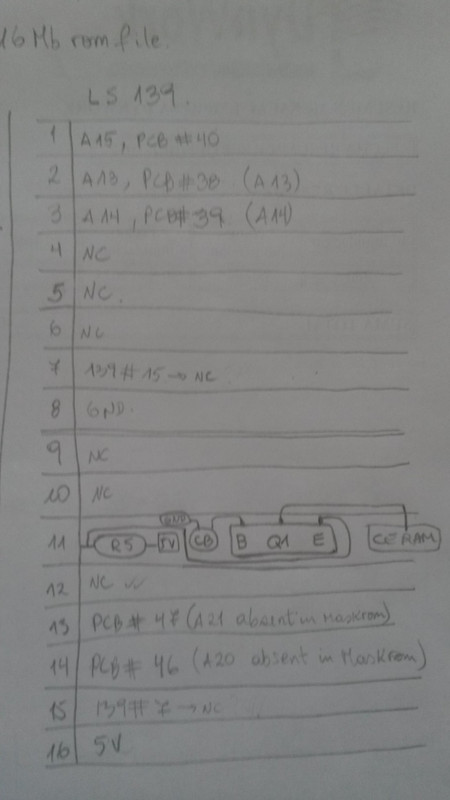 16 Mb rom file.
LS 139.
1 A15, PCB #40
2 A13, PCB#38 (A13)
3 A14, PCB#39 (A14)
4 NC
5 NC.
6 NC
7 139#15→NC
8 GND.
9 NC
10 NC
GND
11 R5 CB B Q1 E CERAM
12 NC
13 PCB# 47 (A21 absent in Maskrom)
14 PCB# 46 (A20 absent in Maskrom)
15 139# 7→NC
16 5V